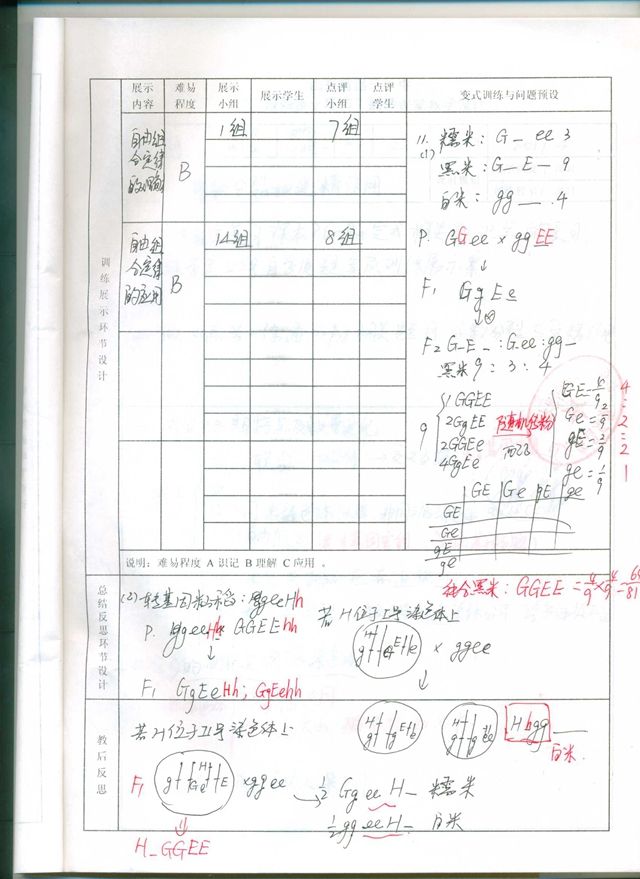 展示内容 难易程度 展示小组 展示学生 点评小组 点评学生 变式训练与问题预设
训练展示环节设计
自由组合定律的理解 B 1组 7组
自由组合定律的应用 B 14组 8组
11. 糯米: G_ ee 3
(1) 黑米: G_E_ 9
白米: gg__ .4
P. GGee × ggEE
↓
F₁ GgEe
↓⊗
F₂ G_E_ :G_ee:gg_
黑米9 : 3 : 4
9 1GGEE
2GgEE
2GGEe
4GgEe
随机传粉
GE=4/9 4
Ge=2/9 2
gE=2/9 2
ge=1/9 1
GE Ge gE ge
GE
Ge
gE
ge
说明：难易程度 A 识记 B 理解 C 应用 。
纯合黑米: GGEE = 4/9×4/9=
总结反思环节设计
(2) 转基因水稻: ggeeHh
P. ggeeHh × GGEEhh
↓
F₁ GgEeHh; GgEehh
若H位于I号染色体上
× ggee
↓
教后反思
若H位于II号染色体上
F₁ × ggee
Hhgg
白米
→ 1/2 GgeeH_ 糯米
1/2 ggeeH_ 白米
H_GGEE